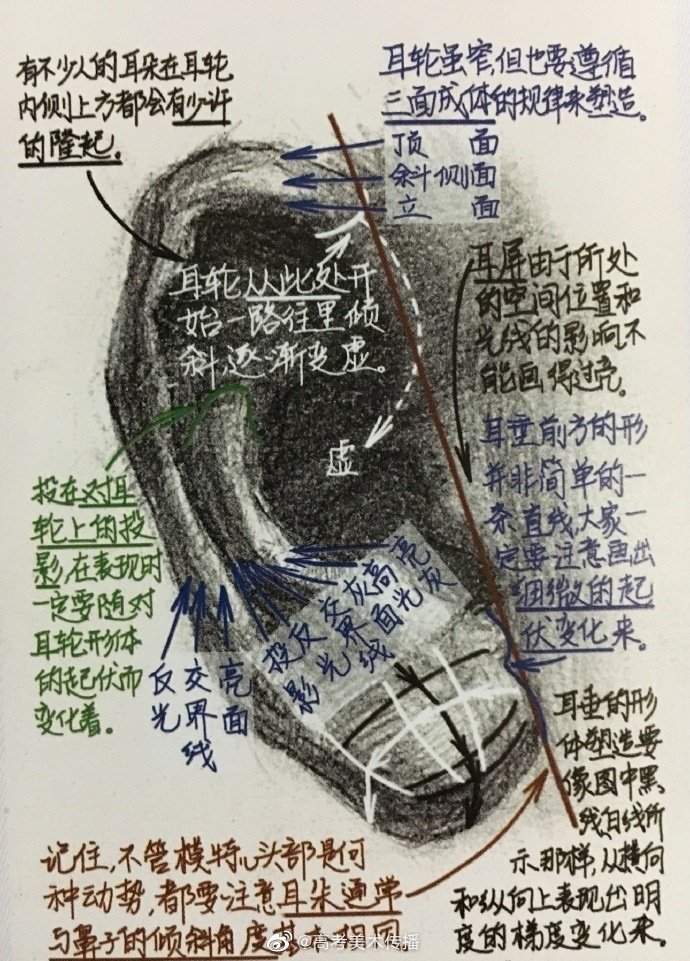 有不少人的耳朵在耳轮
内侧上方都会有少许
的隆起。
耳轮虽窄,但也要遵循
三面成体的规律来塑造。
顶面
斜侧面
立面
耳轮从此处开
始一路往里倾
斜,逐渐变虚。
虚
耳屏由于所处
的空间位置和
光线的影响不
能画得过亮。
耳垂前方的形
并非简单的一
条直线,大家一
定要注意画出
细微的起
伏变化来。
投在对耳
轮上的投
影,在表现时
一定要随对
耳轮形体
的起伏而
变化着。
反光
交界线
亮面
投影
反光
交界线
灰面
高光
亮灰
耳垂的形
体塑造要
像图中黑
线白线所
示那样,从横向
和纵向上表现出明
度的梯度变化来。
记住,不管模特头部是何
种动势,都要注意耳朵通常
与鼻子的倾斜角度
@高考美术传播